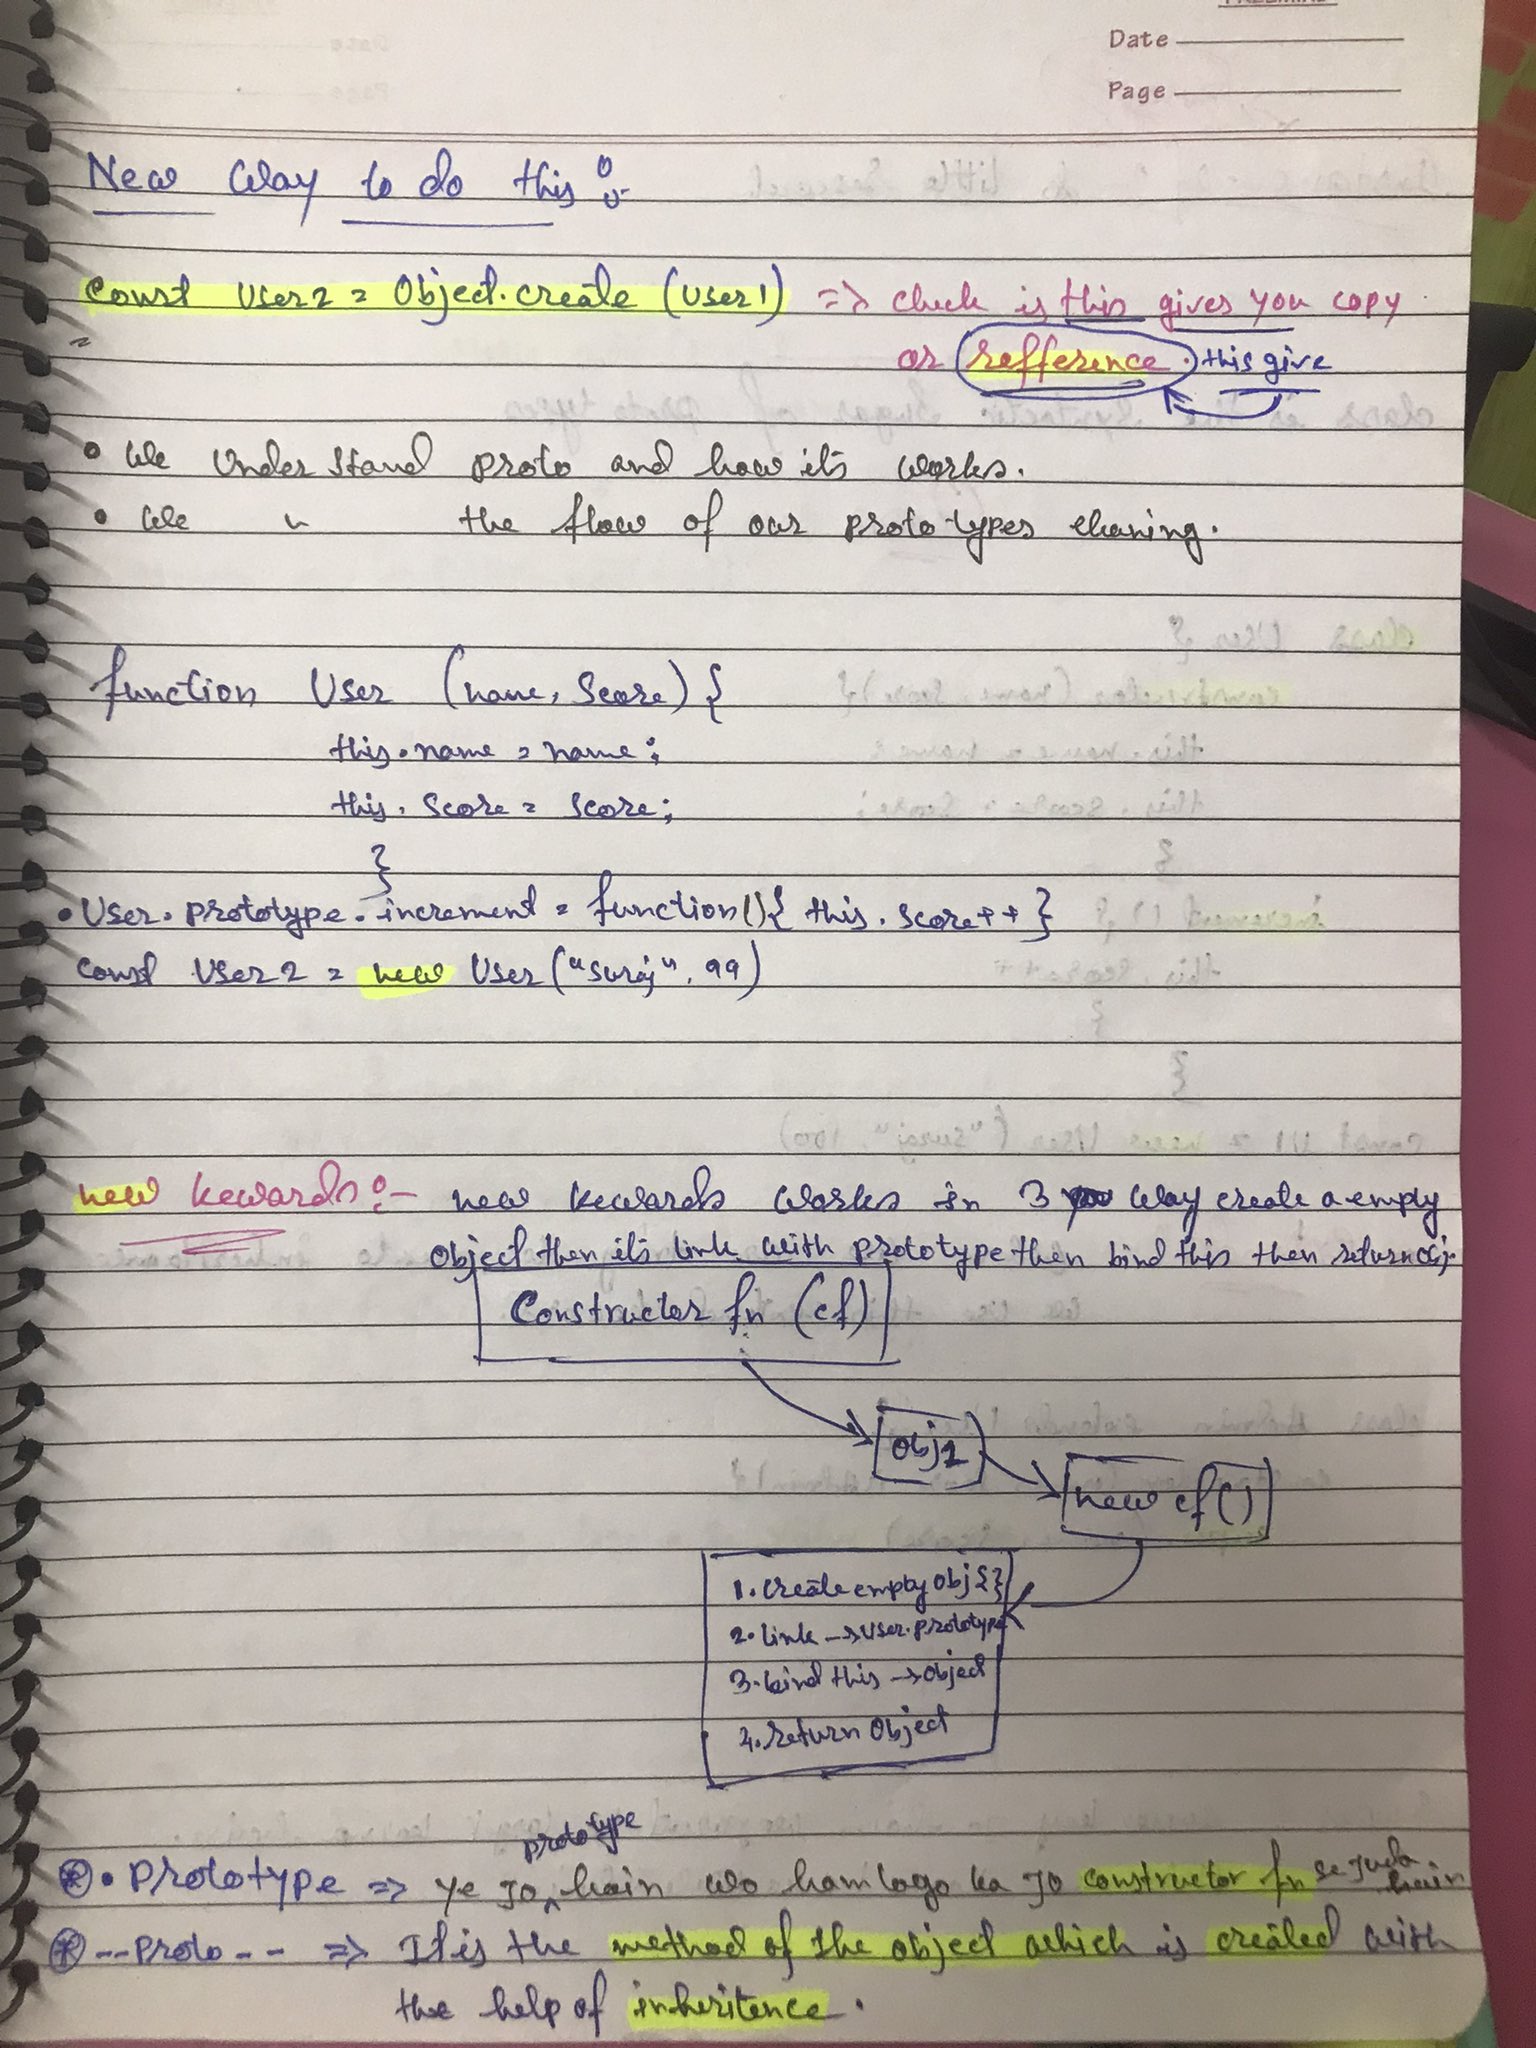 Date
Page
New Way to do this :-
const user2 = Object.create (user1) => check is this gives you copy
or refference. this give
• We understand proto and how it's works.
• We " the flow of our prototypes chaning.
function User (name, Score) {
this.name = name;
this.Score = Score;
}
• User.prototype.increment = function(){ this.score++ }
const User2 = new User ("suraj", 99)
new kewards :- new kewards works in 3 way create a empty
object then it's link with prototype then bind this then return obj.
Constructor fn (cf)
obj1
new cf()
1. Create empty obj {}
2. link -> User.prototype
3. bind this -> object
4. return Object
prototype
• Prototype => ye jo hain wo hamlogo ka jo constructor fn se juda hain
--proto-- => It is the method of the object which is created with
the help of inheritence.